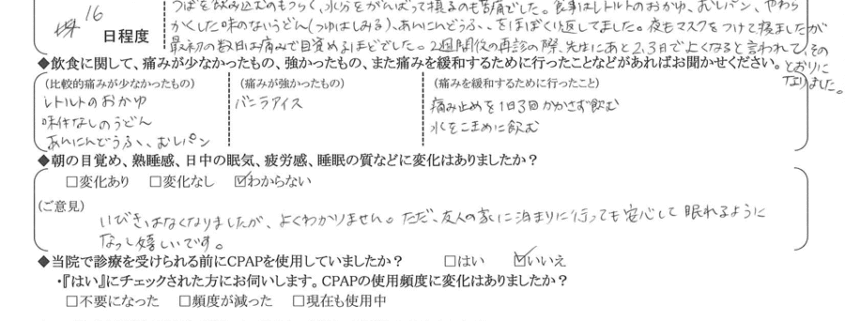 つばを飲み込むのもつらく、水分をがんばって摂るのも苦痛でした。食事はレトルトのおかゆ、むしパン、やわら
約16日程度
かくした味のないうどん(つゆはしみる)、あんにんどうふ、をほぼくり返してました。夜もマスクをつけて寝ましたが
最初の数日は痛みで目覚めるほどでした。2週間後の再診の際、先生にあと2、3日でよくなると言われて、その
とおりに
なりました。
◆飲食に関して、痛みが少なかったもの、強かったもの、また痛みを緩和するために行ったことなどがあればお聞かせください。
(比較的痛みが少なかったもの) (痛みが強かったもの) (痛みを緩和するために行ったこと)
レトルトのおかゆ バニラアイス 痛み止めを1日3回かかさず飲む
味付なしのうどん 水をこまめに飲む
あんにんどうふ、むしパン
◆朝の目覚め、熟睡感、日中の眠気、疲労感、睡眠の質などに変化はありましたか?
□変化あり □変化なし ☑わからない
(ご意見)
いびきはなくなりましたが、よくわかりません。ただ、友人の家に泊まりに行っても安心して眠れるように
なって嬉しいです。
◆当院で診療を受けられる前にCPAPを使用していましたか? □はい ☑いいえ
・『はい』にチェックされた方にお伺いします。CPAPの使用頻度に変化はありましたか?
□不要になった □頻度が減った □現在も使用中